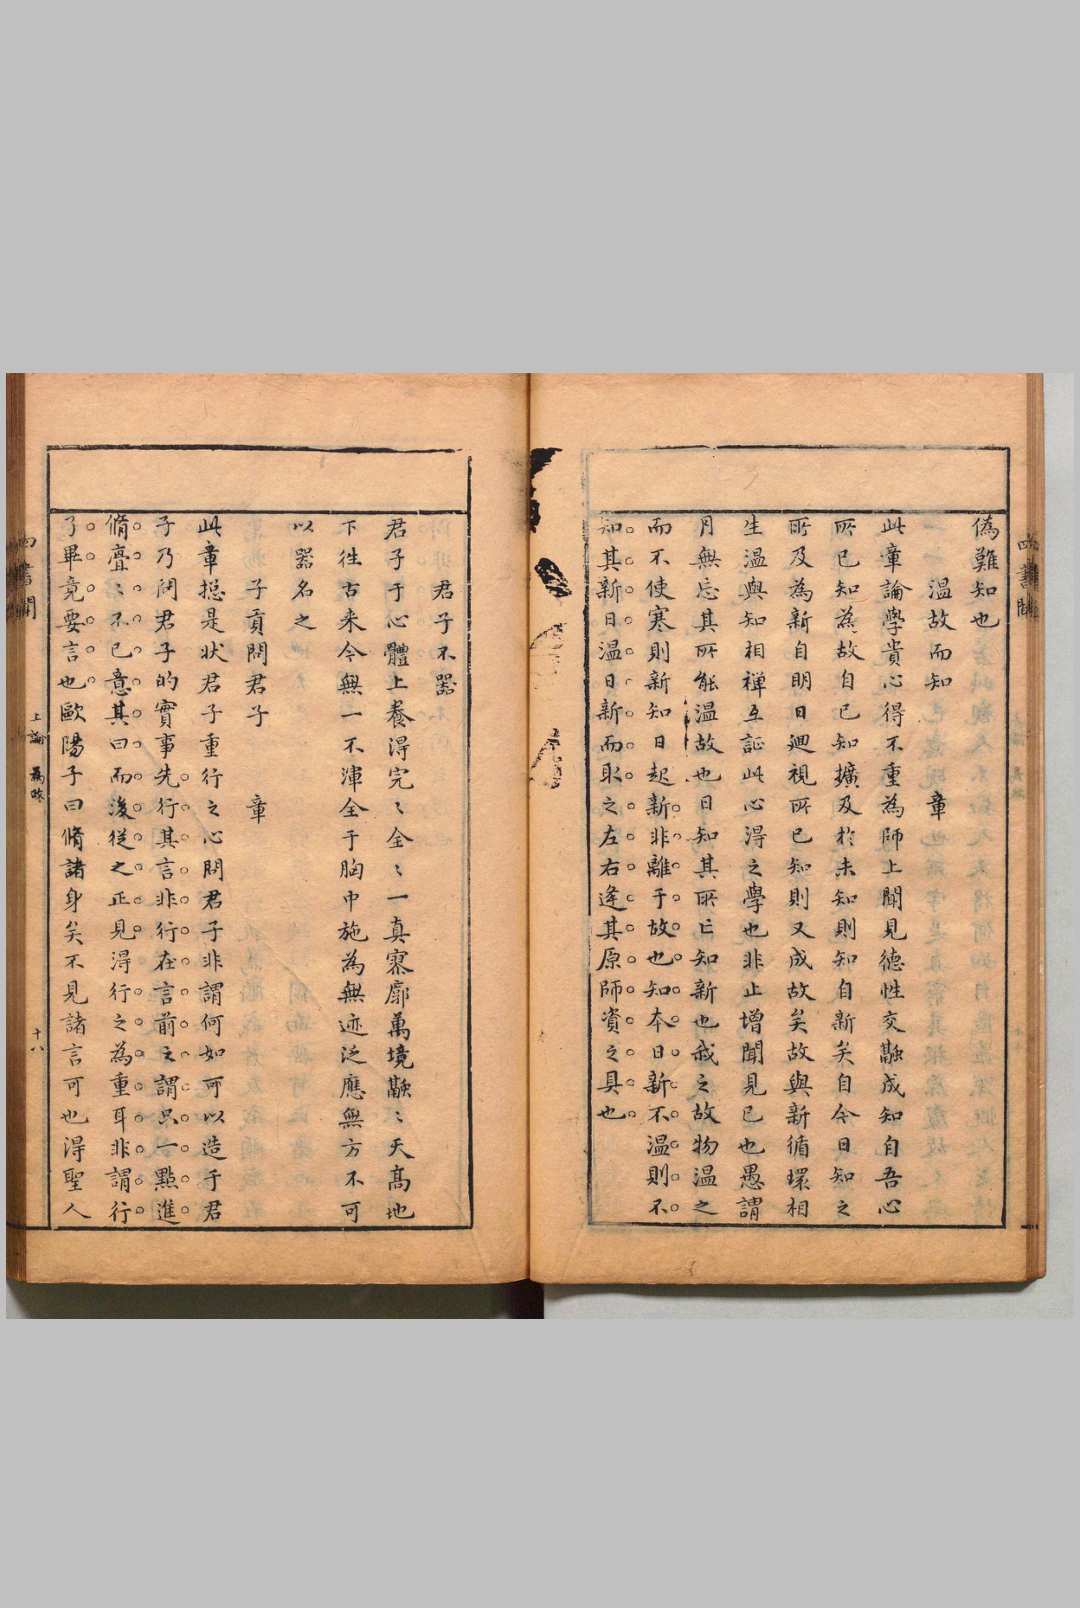 偽難知也
溫故而知 章
此章論學貴心得不重為師上聞見德性交融成知自吾心
所已知為故自已知擴及於未知則知自新矣自今日知之
所及為新自明日廻視所已知則又成故矣故與新循環相
生溫與知相禪互証此心得之學也非止增聞見已也愚謂
月無忘其所能溫故也日知其所亡知新也我之故物溫之
而不使寒則新知日起新非離于故也知本日新不溫則不
知其新日溫日新而取之左右逢其原師資之具也
君子不器
君子于心體上養得完〻全〻一真寥廓萬境融〻天高地
下徃古来今無一不渾全于胸中施為無迹泛應無方不可
以器名之
子貢問君子 章
此章搃是狀君子重行之心問君子非謂何如可以造于君
子乃問君子的實事先行其言非行在言前之謂只一點進
脩亹〻不已意其曰而後從之正見得行之為重耳非謂行
了畢竟要言也歐陽子曰脩諸身矣不見諸言可也得聖人
上論 為政
十八